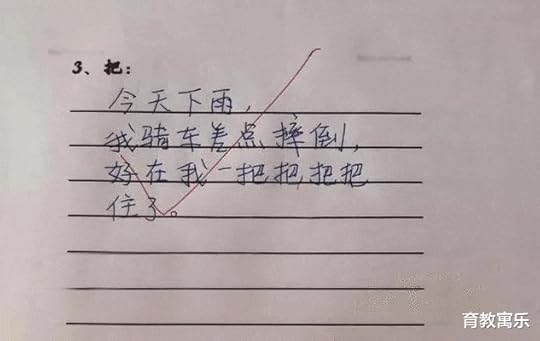 3、把：
今天下雨，
我骑车差点摔倒，
好在我一把把把把
住了。
育教寓乐